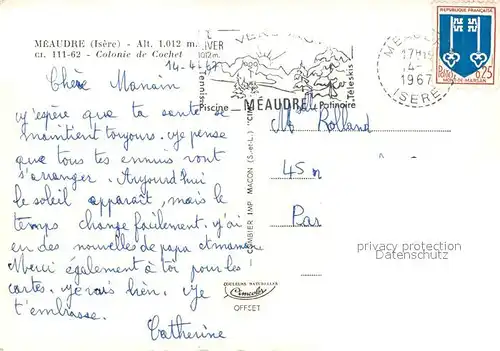 MÉAUDRE (Isère) - Alt. 1.012 m.
CI. 111-62 - Colonie de Cochet
14-4-67
Chère Manain
j'espère que ta santé se
maintient toujours. je pense
que tous tes ennuis vont
s'arranger. Aujourd'hui
le soleil apparait, mais le
temps change facilement. j'ai
eu des nouvelles de papa et maman
Merci également à toi pour les
cartes. je vais bien. je
t'embrasse.
Catherine
COMBIER IMP. MACON (S.-et-L.)
COULEURS NATURELLES
Cimcolor
OFFSET
VERS
1012m.
Tennis
Piscine
MÉAUDRE
Patinoire
Téleskis
1967
ISÈRE
REPUBLIQUE FRANÇAISE
0,25
MONT-DE-MARSAN
Rolland
45
Par
privacy protection
Datenschutz